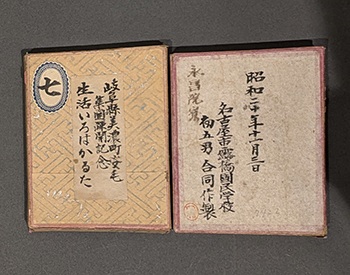 七
岐阜縣美濃町安毛
集團疎開記念
生活いろはかるた
昭和二十年十一月三日
名古屋市露橋國民学校
初五男 合同作製